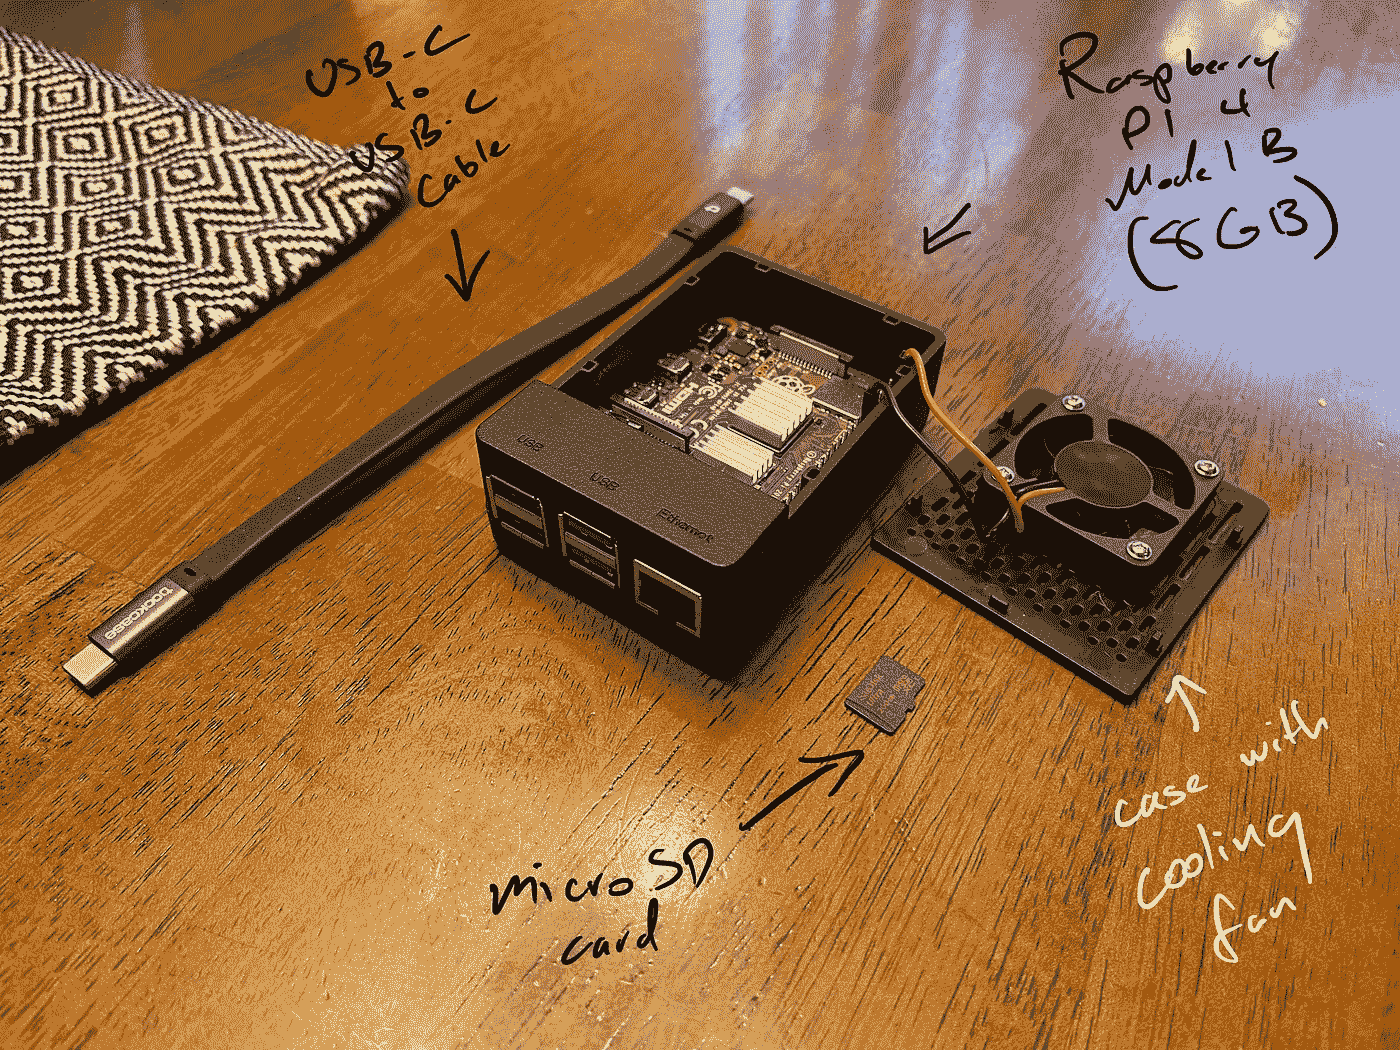 USB-C
to
USB-C
Cable
Raspberry
Pi 4
Model B
(8GB)
USB
USB
Ethernet
HDMI
bookcase
micro SD
card
case with
cooling
fan